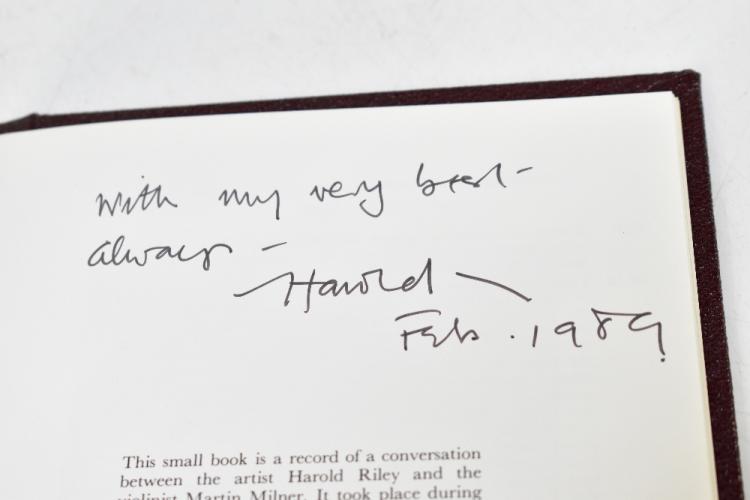 with my very best -
always -
Harold
Feb. 1989
This small book is a record of a conversation
between the artist Harold Riley and the
violinist Martin Milner. It took place during